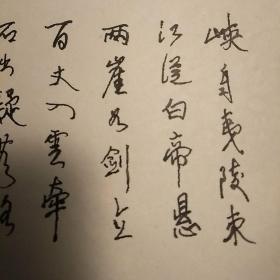 峡自夷陵束
江从白帝悬
两崖如剑立
百丈入云牵
石出疑无路